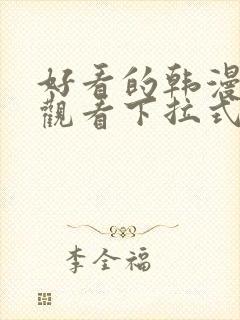 好看的韩漫
觀看下拉式
李全福